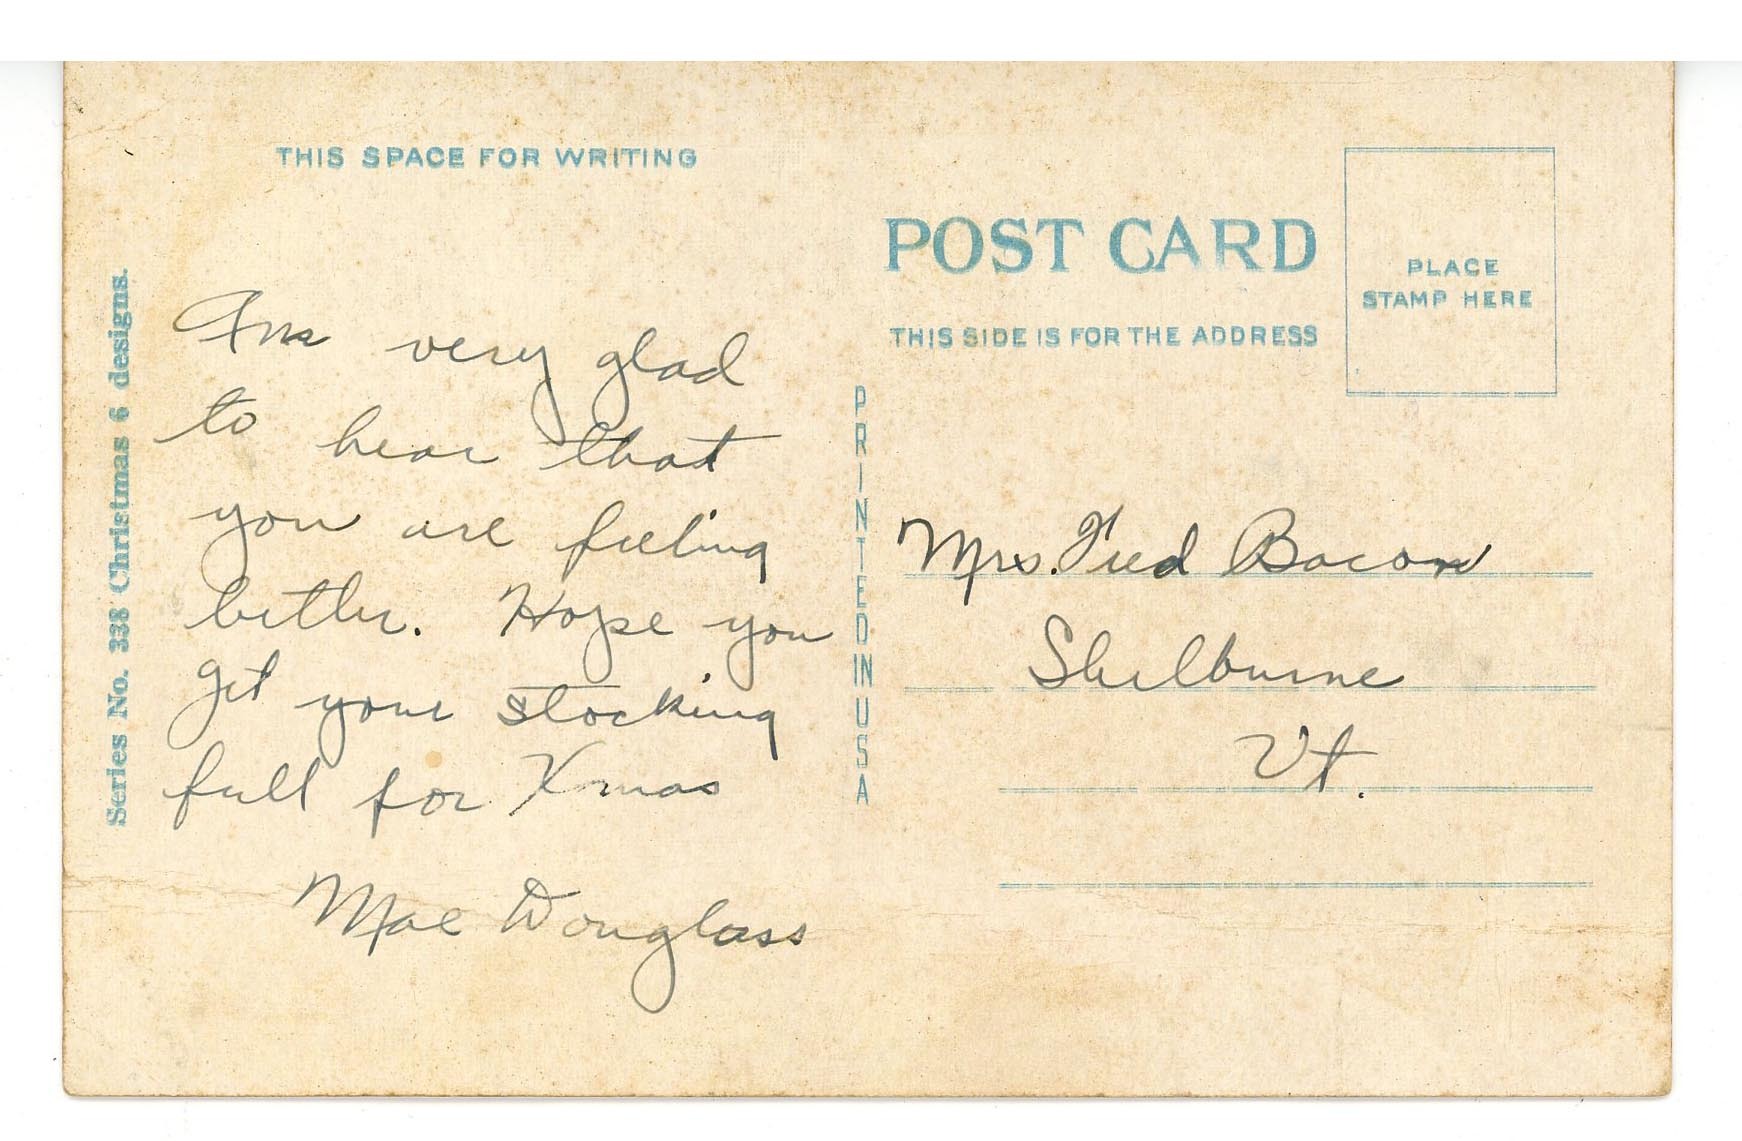 THIS SPACE FOR WRITING
Am very glad
to hear that
you are feeling
better. Hope you
get your stocking
full for Xmas
Mae Douglass
Series No. 338 Christmas 6 designs.
PRINTED IN USA
POST CARD
THIS SIDE IS FOR THE ADDRESS
PLACE
STAMP HERE
Mrs. Fred Bacon
Shelburne
Vt.